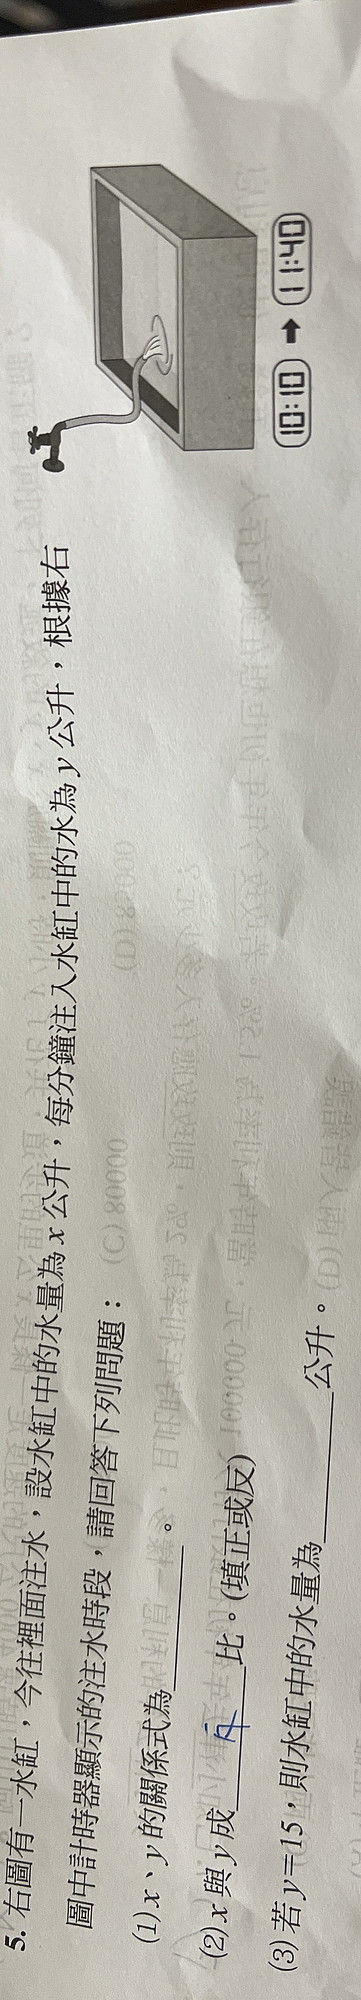 5. 右圖有一水缸，今往裡面注水，設水缸中的水量為 x 公升，每分鐘注入水缸中的水為 y 公升，根據右
圖中計時器顯示的注水時段，請回答下列問題：
(1) x、y 的關係式為________。
(2) x 與 y 成____比。(填正或反)
(3) 若 y=15，則水缸中的水量為________公升。
10:10 ➡ 11:40
(C) 80000